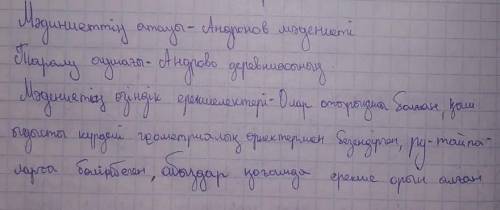 Мәдиниеттің атауы - Андронов мәдениеті
Таралу аумағы - Андрово деревниасының
Мәдиниетің өзіндік ерекшелектері - Олар отырықшы болған, қыш
ыдысты күрделі геометриалық өрнектермен безендірген, ру-тайпа-
ларға бөлінбеген, абыздар қоғамда ерекше орын алған